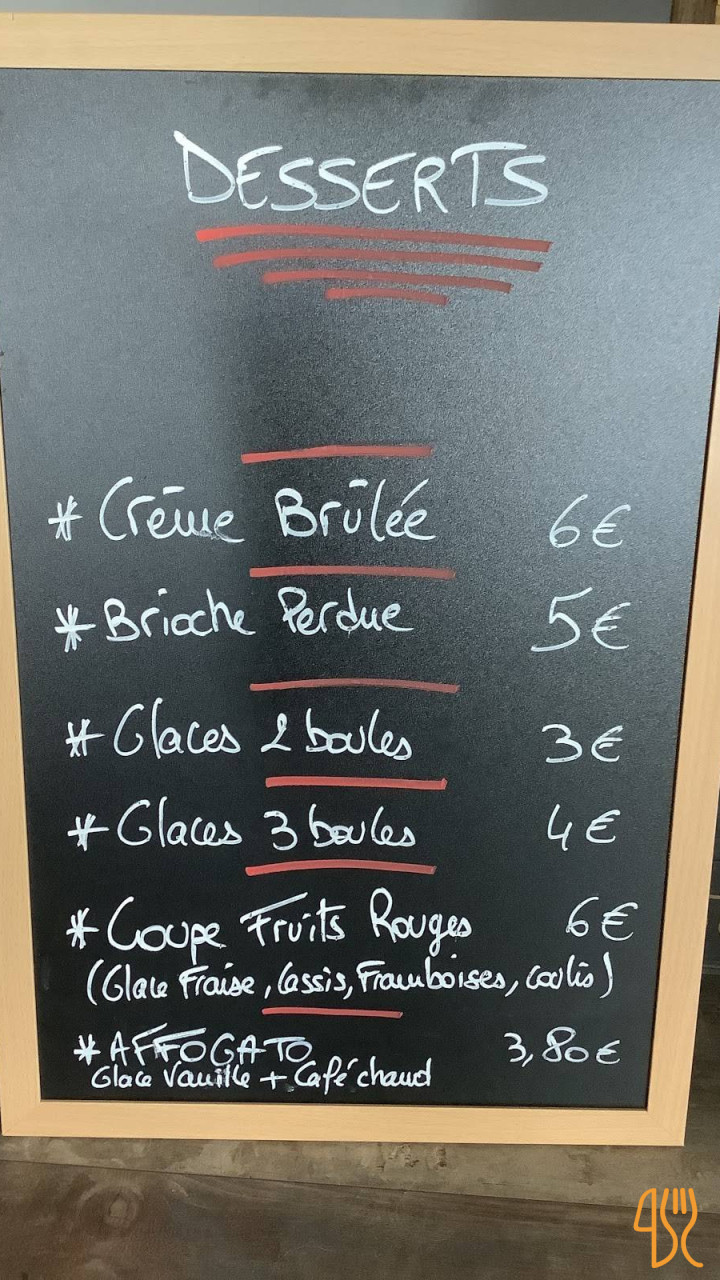 DESSERTS
* Crême Brûlée 6€
* Brioche Perdue 5€
* Glaces 2 boules 3€
* Glaces 3 boules 4€
* Coupe Fruits Rouges 6€
(Glace Fraise, Cassis, Framboises, coulis)
* AFFOGATO 3,80€
Glace Vanille + Café chaud